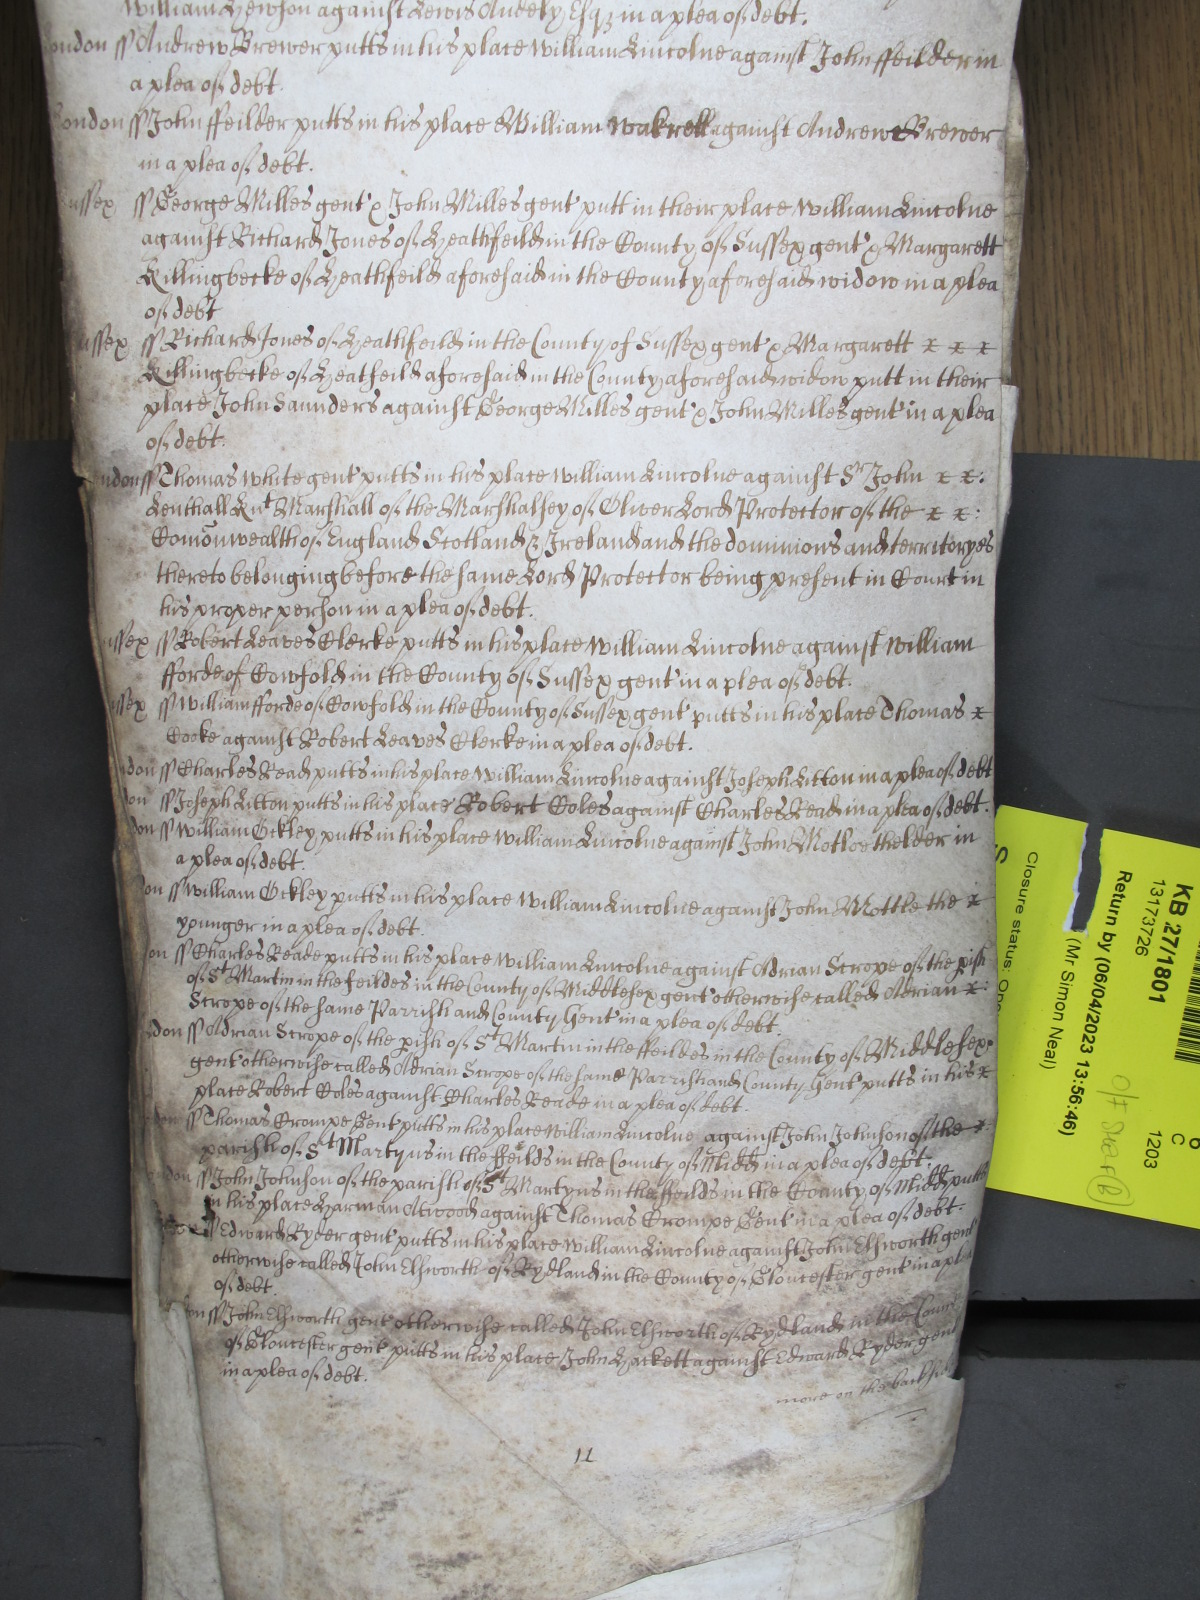 William Hewson against Lewis Audely Esqz in a plea of debt.
ondon ss Andrew Brewer putts in his place William Lincolne against John ffeilder in
a plea of debt.
London ss John ffeilder putts in his place William Wakrell against Andrew Brewer
in a plea of debt.
ussex ss George Milles gent & John Milles gent putt in their place William Lincolne
against Richard Jones of Heathfeild in the County of Sussex gent & Margarett
Killingbecke of Heathfeild aforesaid in the County aforesaid widow in a plea
of debt
ussex ss Richard Jones of Heathfeild in the County of Sussex gent & Margarett x x x
Killingbecke of Heatfeild aforesaid in the County aforesaid widow putt in their
place John Saunders against George Milles gent & John Milles gent in a plea
of debt.
ndon ss Thomas White gent putts in his place William Lincolne against Sr John x x:
Lenthall Knt Marshall of the Marshalsey of Oliver Lord Protector of the x x:
Comonwealth of England Scotland & Ireland and the dominions and territoryes
thereto belonging before the same Lord Protector being present in Court in
his proper person in a plea of debt.
ussex ss Robert Leaves Clerke putts in his place William Lincolne against William
fforde of Cowfold in the County of Sussex gent in a plea of debt.
ssex ss William fforde of Cowfold in the County of Sussex gent putts in his place Thomas x
Cooke against Robert Leaves Clerke in a plea of debt.
ndon ss Charles Read putts in his place William Lincolne against Joseph Litton in a plea of debt
don ss Joseph Litton putts in his place Robert Coles against Charles Read in a plea of debt.
don ss William Ockley putts in his place William Lincolne against John Motloe thelder in
a plea of debt.
don ss William Ockley putts in his place William Lincolne against John Mottle the x
younger in a plea of debt.
on ss Charles Reade putts in his place William Lincolne against Adrian Scrope of the pish
of St Martin in the feildes in the County of Middlesex gent otherwise called Adrian x:
Scrope of the same Parrish and County Gent in a plea of debt.
don ss Adrian Scrope of the pish of St Martin in the ffeildes in the County of Middlesex
gent otherwise called Adrian Scrope of the same Parrish and County Gent putts in his x
place Robert Coles against Charles Reade in a plea of debt.
don ss Thomas Crompe Gent putts in his place William Lincolne against John Johnson of the x
parish of St Martyns in the ffeilds in the County of Midd in a plea of debt.
ondon ss John Johnson of the parish of St Martyns in the ffeilds in the County of Midd putts
in his place Harman Atwood against Thomas Crompe Gent in a plea of debt.
ss Edward Ryder gent putts in his place William Lincolne against John Elsworth gent
otherwise called John Elsworth of Rydland in the County of Gloucester gent in a plea
of debt.
on ss John Elsworth gent otherwise called John Elsworth of Rydland in the Count
of Gloucester gent putts in his place John Hackett against Edward Ryder gent
in a plea of debt.
more on the backside
11
KB 27/1801
13173726
Return by (06/04/2023 13:56:46)
(Mr. Simon Neal)
Closure status: Ope
S
6
C
1203